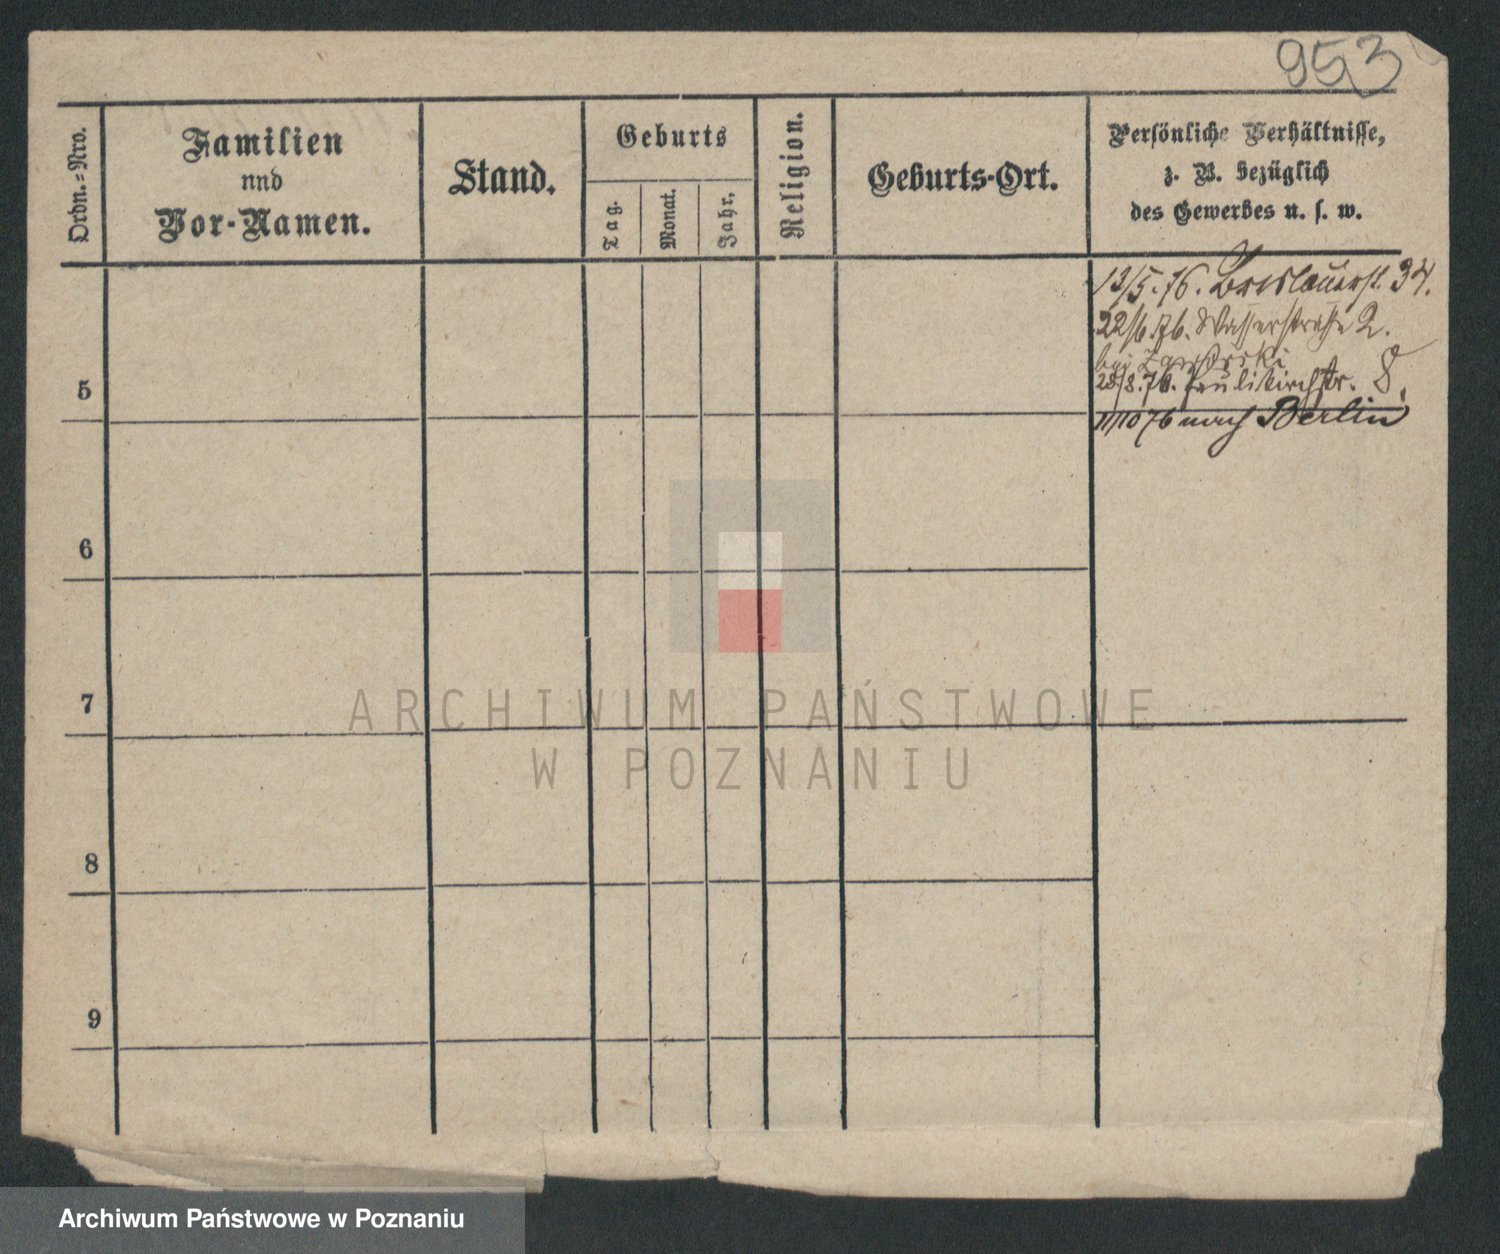 953
Ordn.=Nro.
Familien
nnd
Vor-Namen.
Stand.
Geburts
Tag.
Monat.
Jahr.
Religion.
Geburts-Ort.
Persönliche Verhältnisse,
z. B. bezüglich
des Gewerbes u. s. w.
13/5.76. Breslauerst. 34.
22/6.76. Wasserstraße 2.
bei
5
28/8.76. Paulikirchstr. 8.
11/10 76 nach Berlin
6
7
8
9
ARCHIWUM PAŃSTWOWE
W POZNANIU
Archiwum Państwowe w Poznaniu